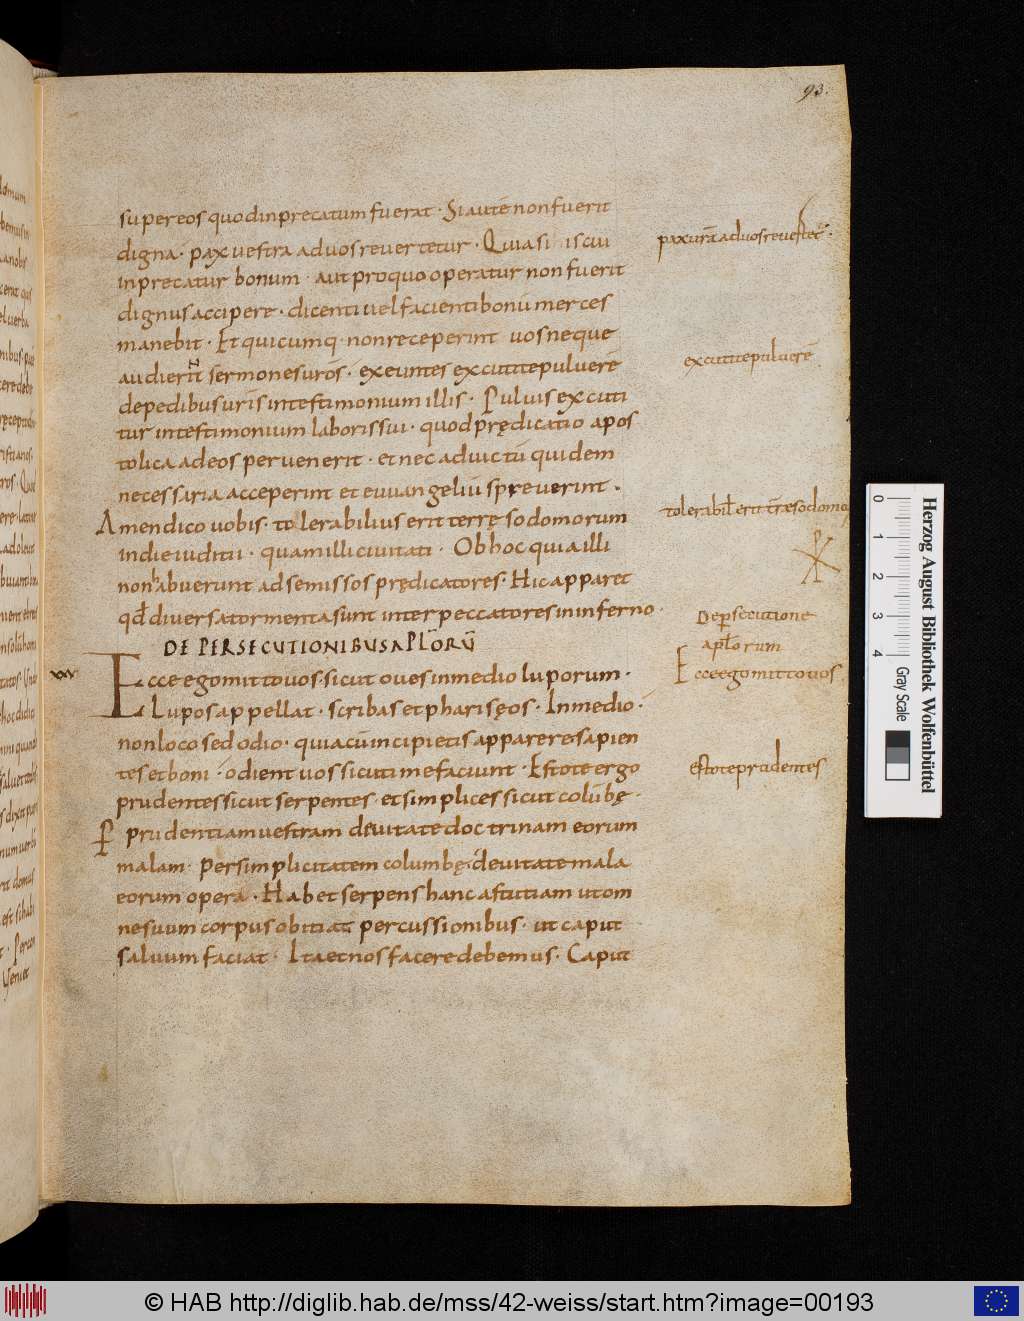 93.
super eos quod inprecatum fuerat · Si autē non fuerit
digna · pax vestra ad vos revertetur · Quia si is cui
inprecatur bonum · aut pro quo operatur non fuerit
dignus accipere · dicenti vel facienti bonū merces
manebit · Et quicumq· non receperint vos neque
audierit sermones urōs · exeuntes excutite pulverē
de pedibus uris in testimonium illis · Pulvis excuti
tur in testimonium laboris sui · quod prędicatio apos
tolica ad eos pervenerit · et nec ad victū quidem
necessaria acceperint et euuangeliū spreverint ·
Amen dico vobis · tolerabilius erit terrę sodomorum
in die iuditii · quam illi civitati · Ob hoc quia illi
non habuerunt ad se missos prędicatores · Hic apparet
qđ diversa tormenta sunt inter peccatores in inferno ·
DE PERSECUTIONIBUS APLORŪ
Ecce ego mitto vos · sicut oves in medio luporum ·
Lupos appellat · scribas et pharisęos · In medio ·
non loco sed odio · quia cū incipietis apparere sapien
tes et boni · odient vos sicuti me faciunt · Estote ergo
prudentes sicut serpentes · et simplices sicut colūbę ·
P prudentiam vestram devitate doctrinam eorum
malam · Per simplicitatem columbę · devitate mala
eorum opera · Habet serpens hanc astutiam ut om
ne suum corpus obitiat percussionibus · ut caput
salvum faciat · Ita et nos facere debemus · Caput
pax urā ad vos revertet ·
excutite pulverē
tolerabil erit trae sodomo
De persecutione
aplorum
Ecce ego mitto vos
estote prudentes
0 1 2 3 4
Herzog August Bibliothek Wolfenbüttel
Gray Scale
© HAB http://diglib.hab.de/mss/42-weiss/start.htm?image=00193